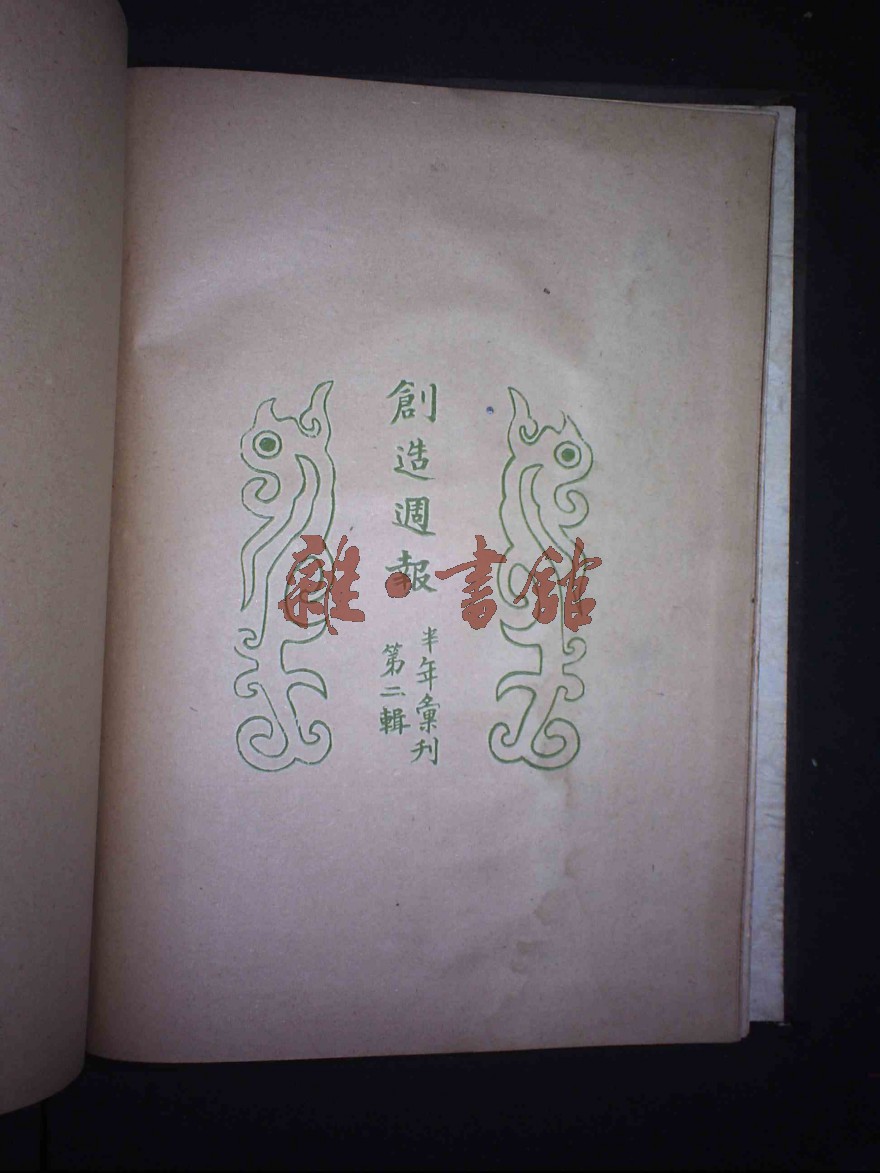 創造週報
半年彙刊
第二輯
雜·書館